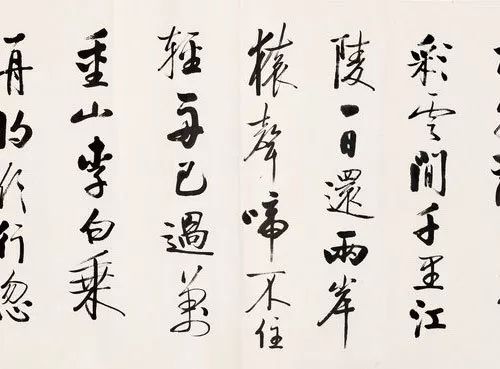 彩雲間千里江
陵一日還兩岸
猿聲啼不住
輕舟已過萬
重山李白乘
舟將欲行忽